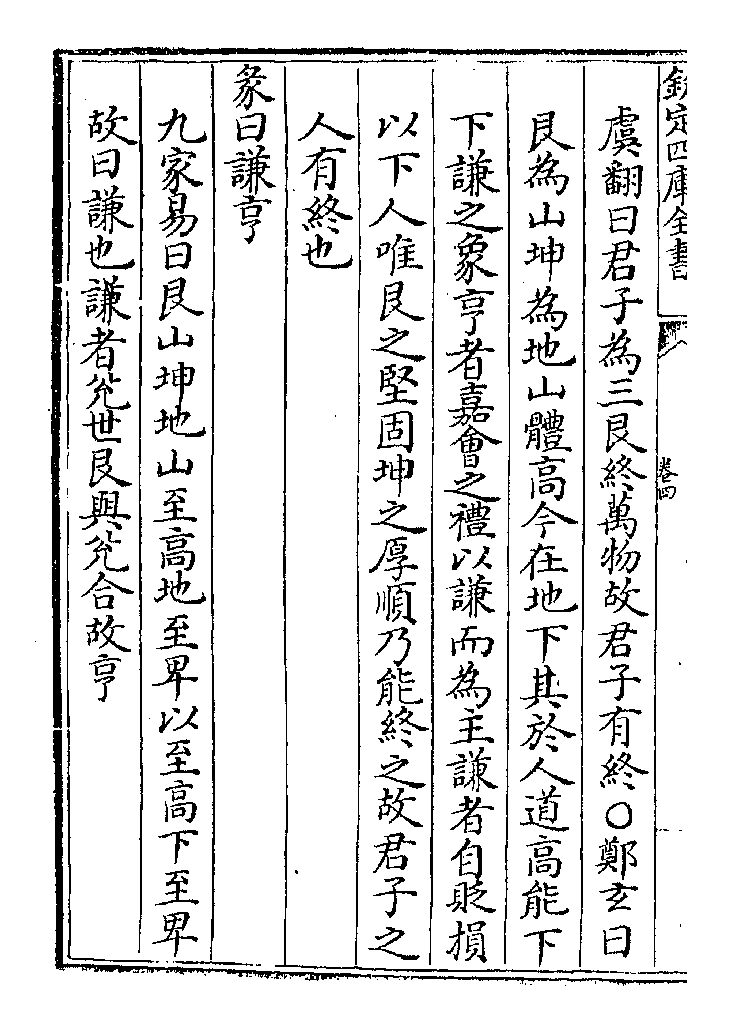 欽定四庫全書
卷四
虞翻曰君子為三艮終萬物故君子有終○鄭玄曰
艮為山坤為地山體高今在地下其於人道高能下
下謙之象亨者嘉會之禮以謙而為主謙者自貶損
以下人唯艮之堅固坤之厚順乃能終之故君子之
人有終也
彖曰謙亨
九家易曰艮山坤地山至高地至卑以至高下至卑
故曰謙也謙者兊世艮與兊合故亨